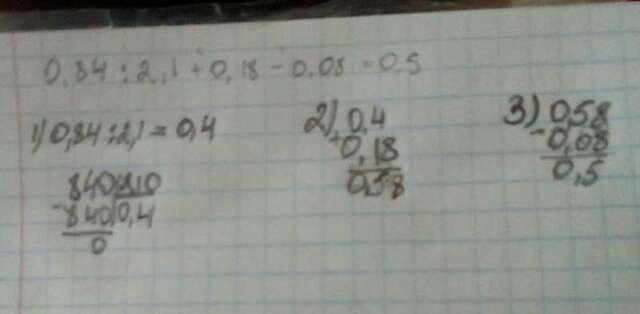 0,84 : 2,1 + 0,18 - 0.08 = 0,5
1) 0,84 : 2,1 = 0,4
840 210
- 840 0,4
0
2) 0,4
- 0,18
0,58
3) 0,58
- 0,08
0,5